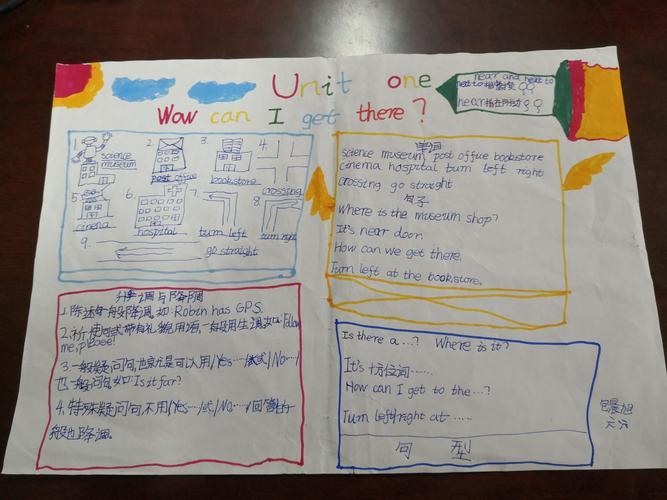 Unit one
Wow can I get there?
near and next to
next to指紧挨
near指在附近
1.
science museum
2.
post office
3.
bookstore
4.
crossing
5.
cinema
6.
hospital
7.
turn left
8.
turn right
9.
go straight
单词
science museum post offiue bookstore
cinema hospital turn left right
crossing go straight
句子
Where is the museum shop?
It's near door.
How can we get there.
Turn left at the bookstore.
升调与降调
1.陈述句一般降调,如:Robin has GPS.
2.祈使句式带有礼貌用语,一般用生调如:Follow
me,please!
3.一般疑问句,也就是可以用/Yes…/或/No…/
也一般问句,如:Is it far?
4.特殊疑问句,不用/Yes…/或/No…/回答的一
般也降调。
Is there a...? Where is it?
It's 十方位词……
How can I get to the...?
Turn left/right at ....
句 型
六六